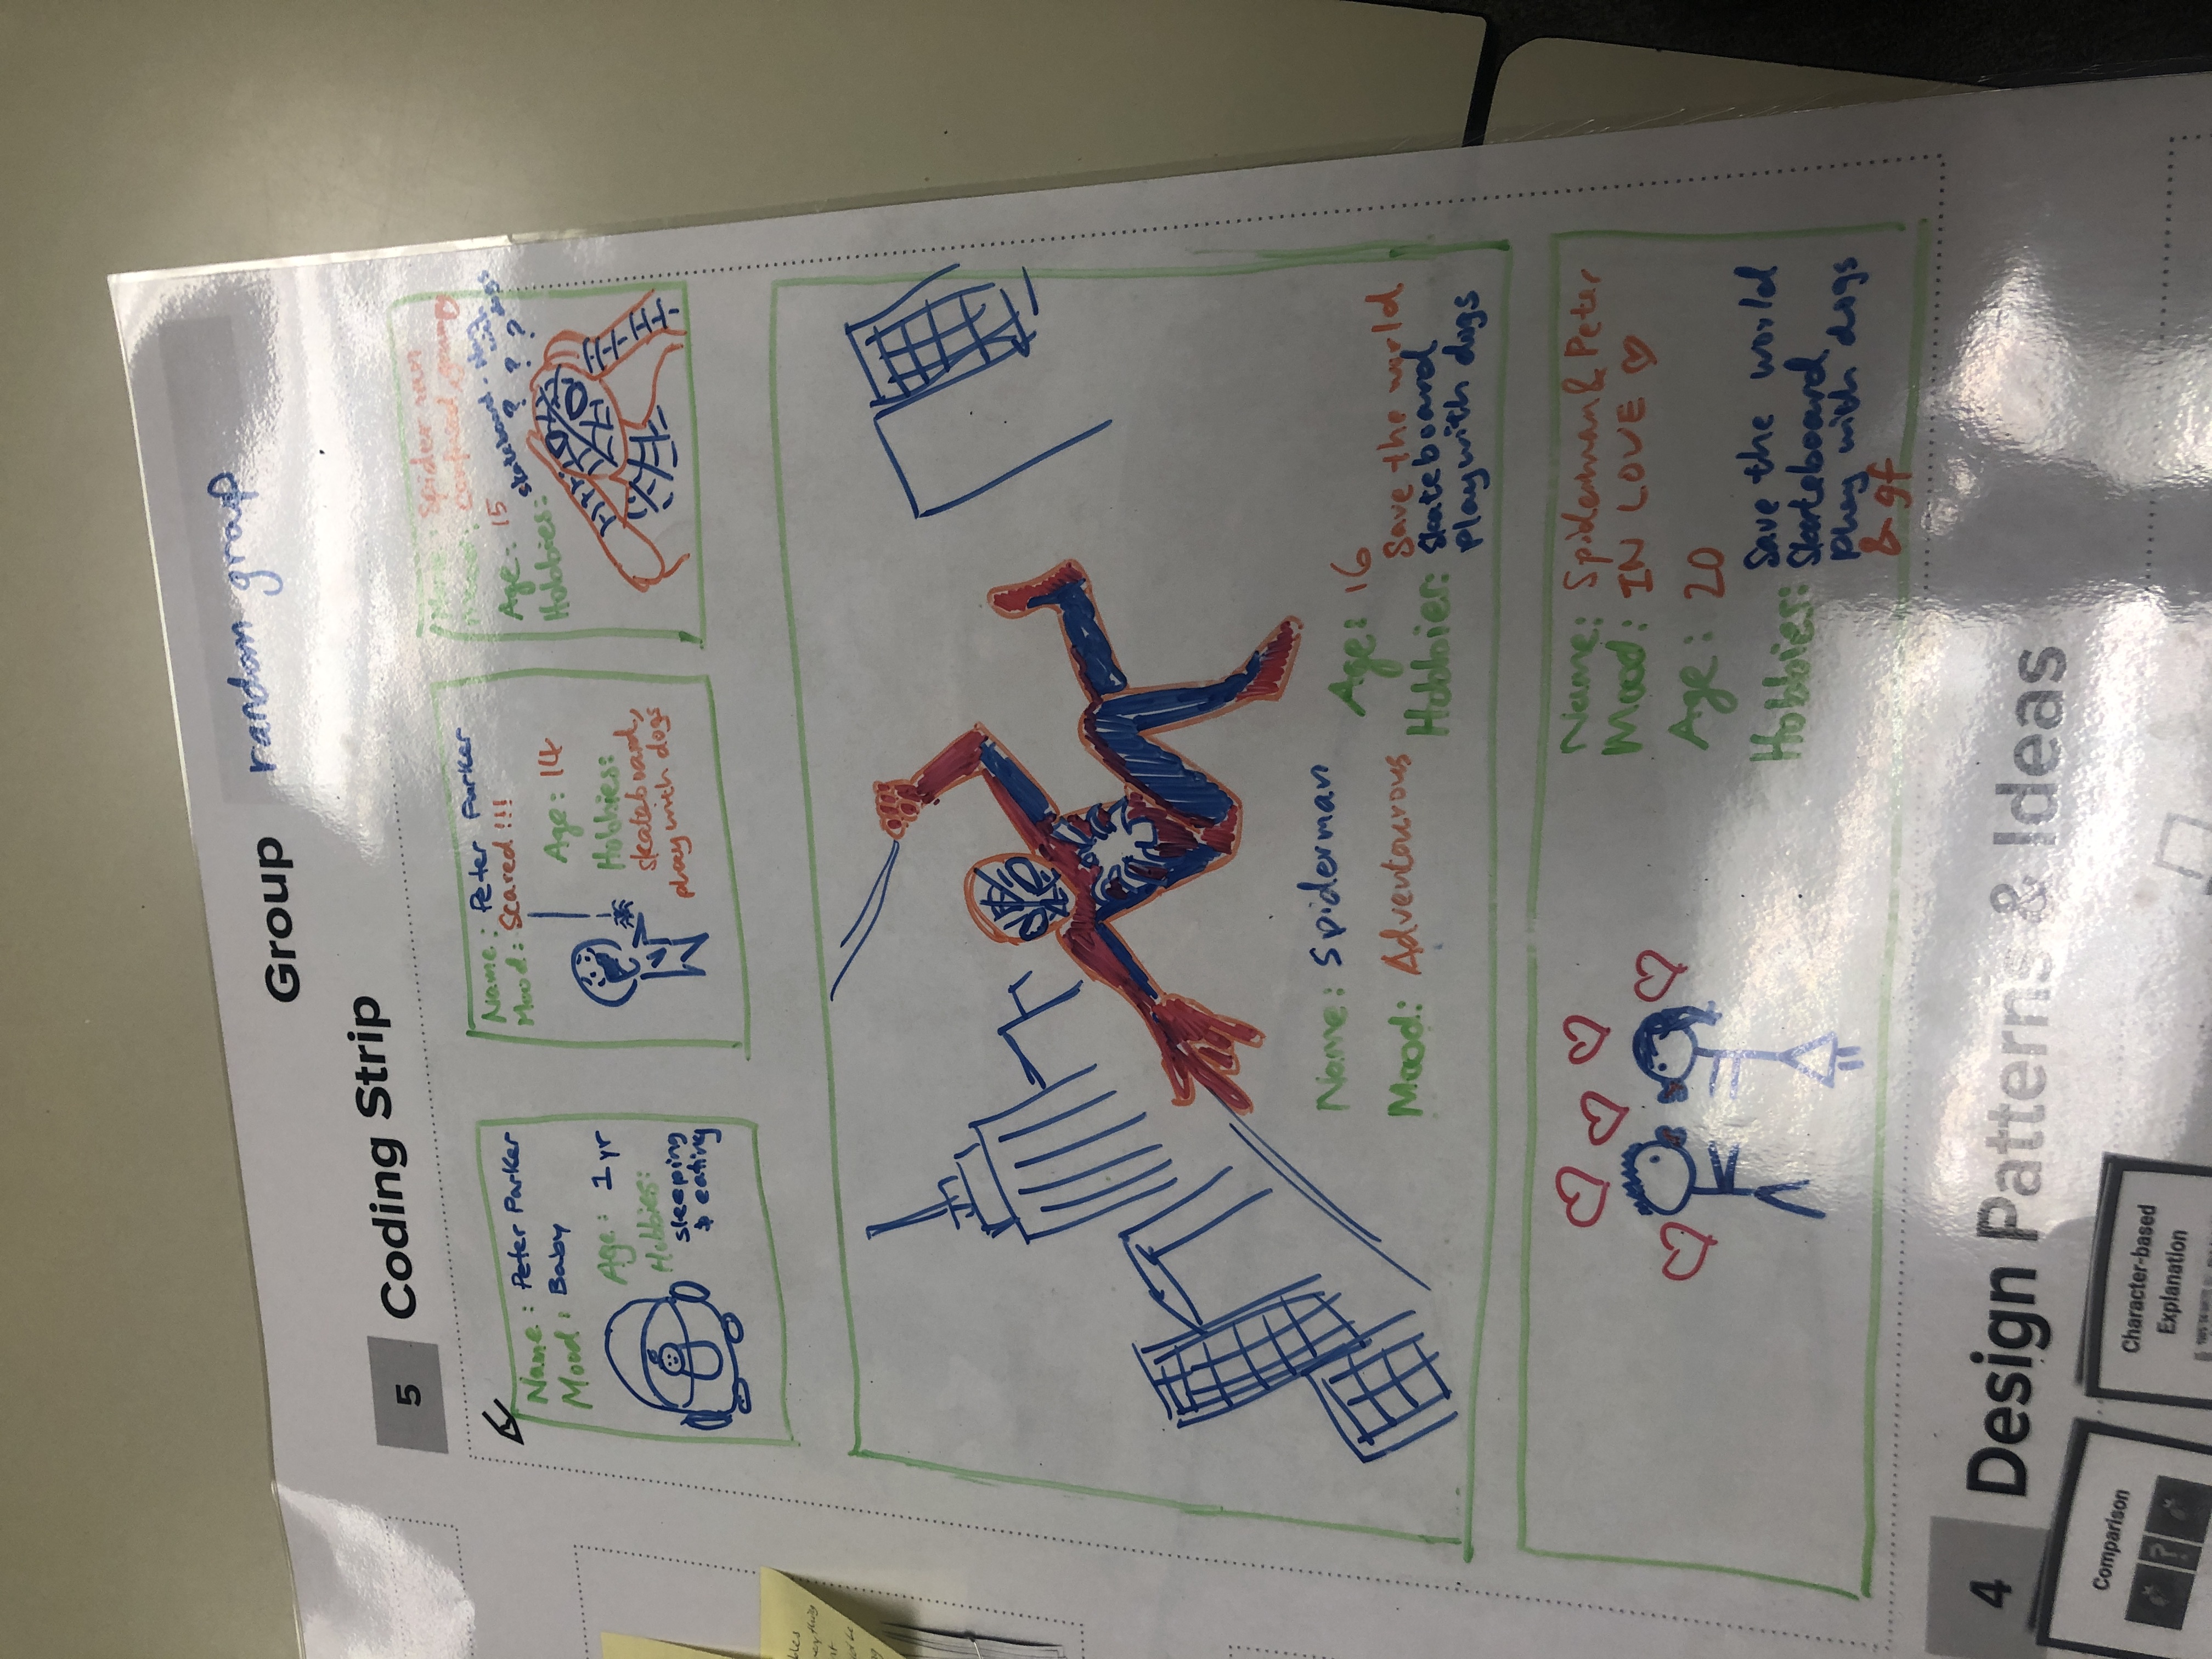 Group random group
5 Coding Strip
Name: Peter Parker
Mood: Baby
Age: 1 yr
Hobbies:
sleeping
& eating
Name: Peter Parker
Mood: Scared!!!
Age: 14
Hobbies:
skateboard,
play with dogs
Name: Spiderman
Mood: confused, grumpy
Age: 15
Hobbies: skateboard, play
with
dogs
? ? ?
Name: Spiderman
Mood: Adventourous
Age: 16
Hobbies: Save the world
Skateboard
Play with dogs
Name: Spiderman & Peter
Mood: IN LOVE ♡
Age: 20
Hobbies: Save the world
Skateboard
Play with dogs
& gf
4 Design Patterns & Ideas
Comparison
?
Character-based
Explanation